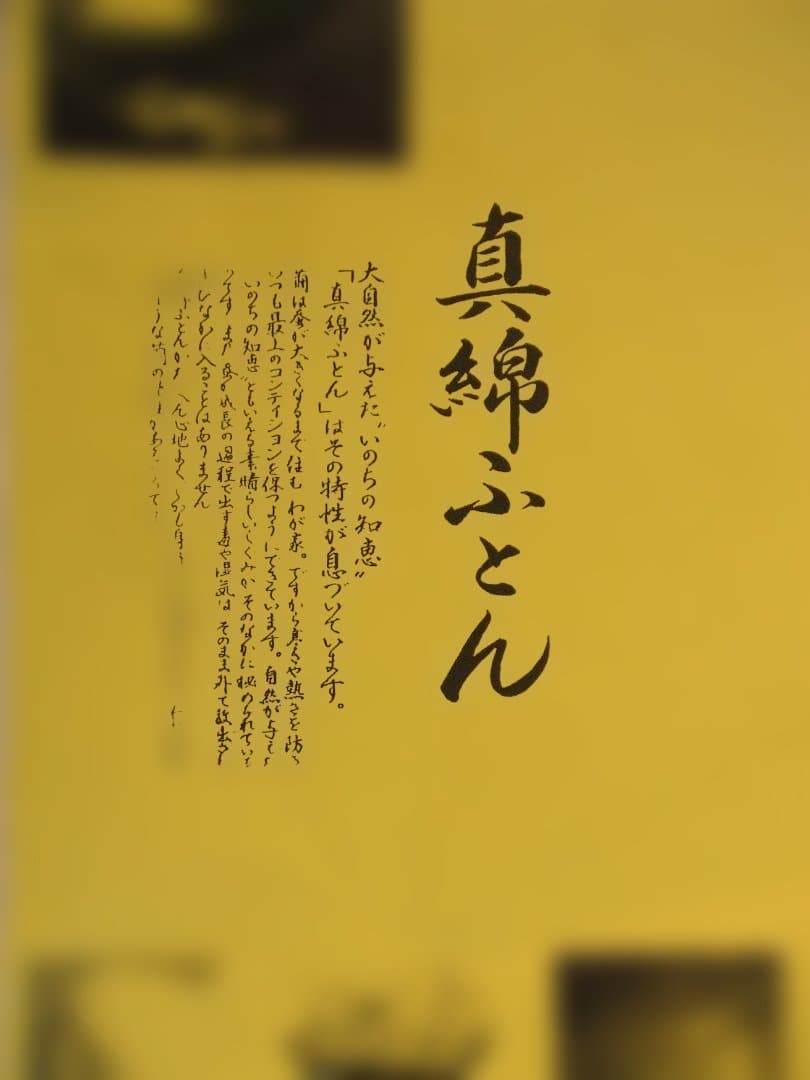 真綿ふとん
大自然が与えた〝いのちの知恵〟
「真綿ふとん」はその特性が息づいています。
繭は蚕が大きくなるまで住む わが家。ですから寒さや熱さを防ぎ
いつも最上のコンディションを保つようにできています。自然が与えた
いのちの知恵〟ともいえる素晴らしいしくみが そのなかに秘められていた
のです また 蚕が成長の過程で出す毒や湿気は そのまま外へ放出され
なかに入ることはありません
心地よく